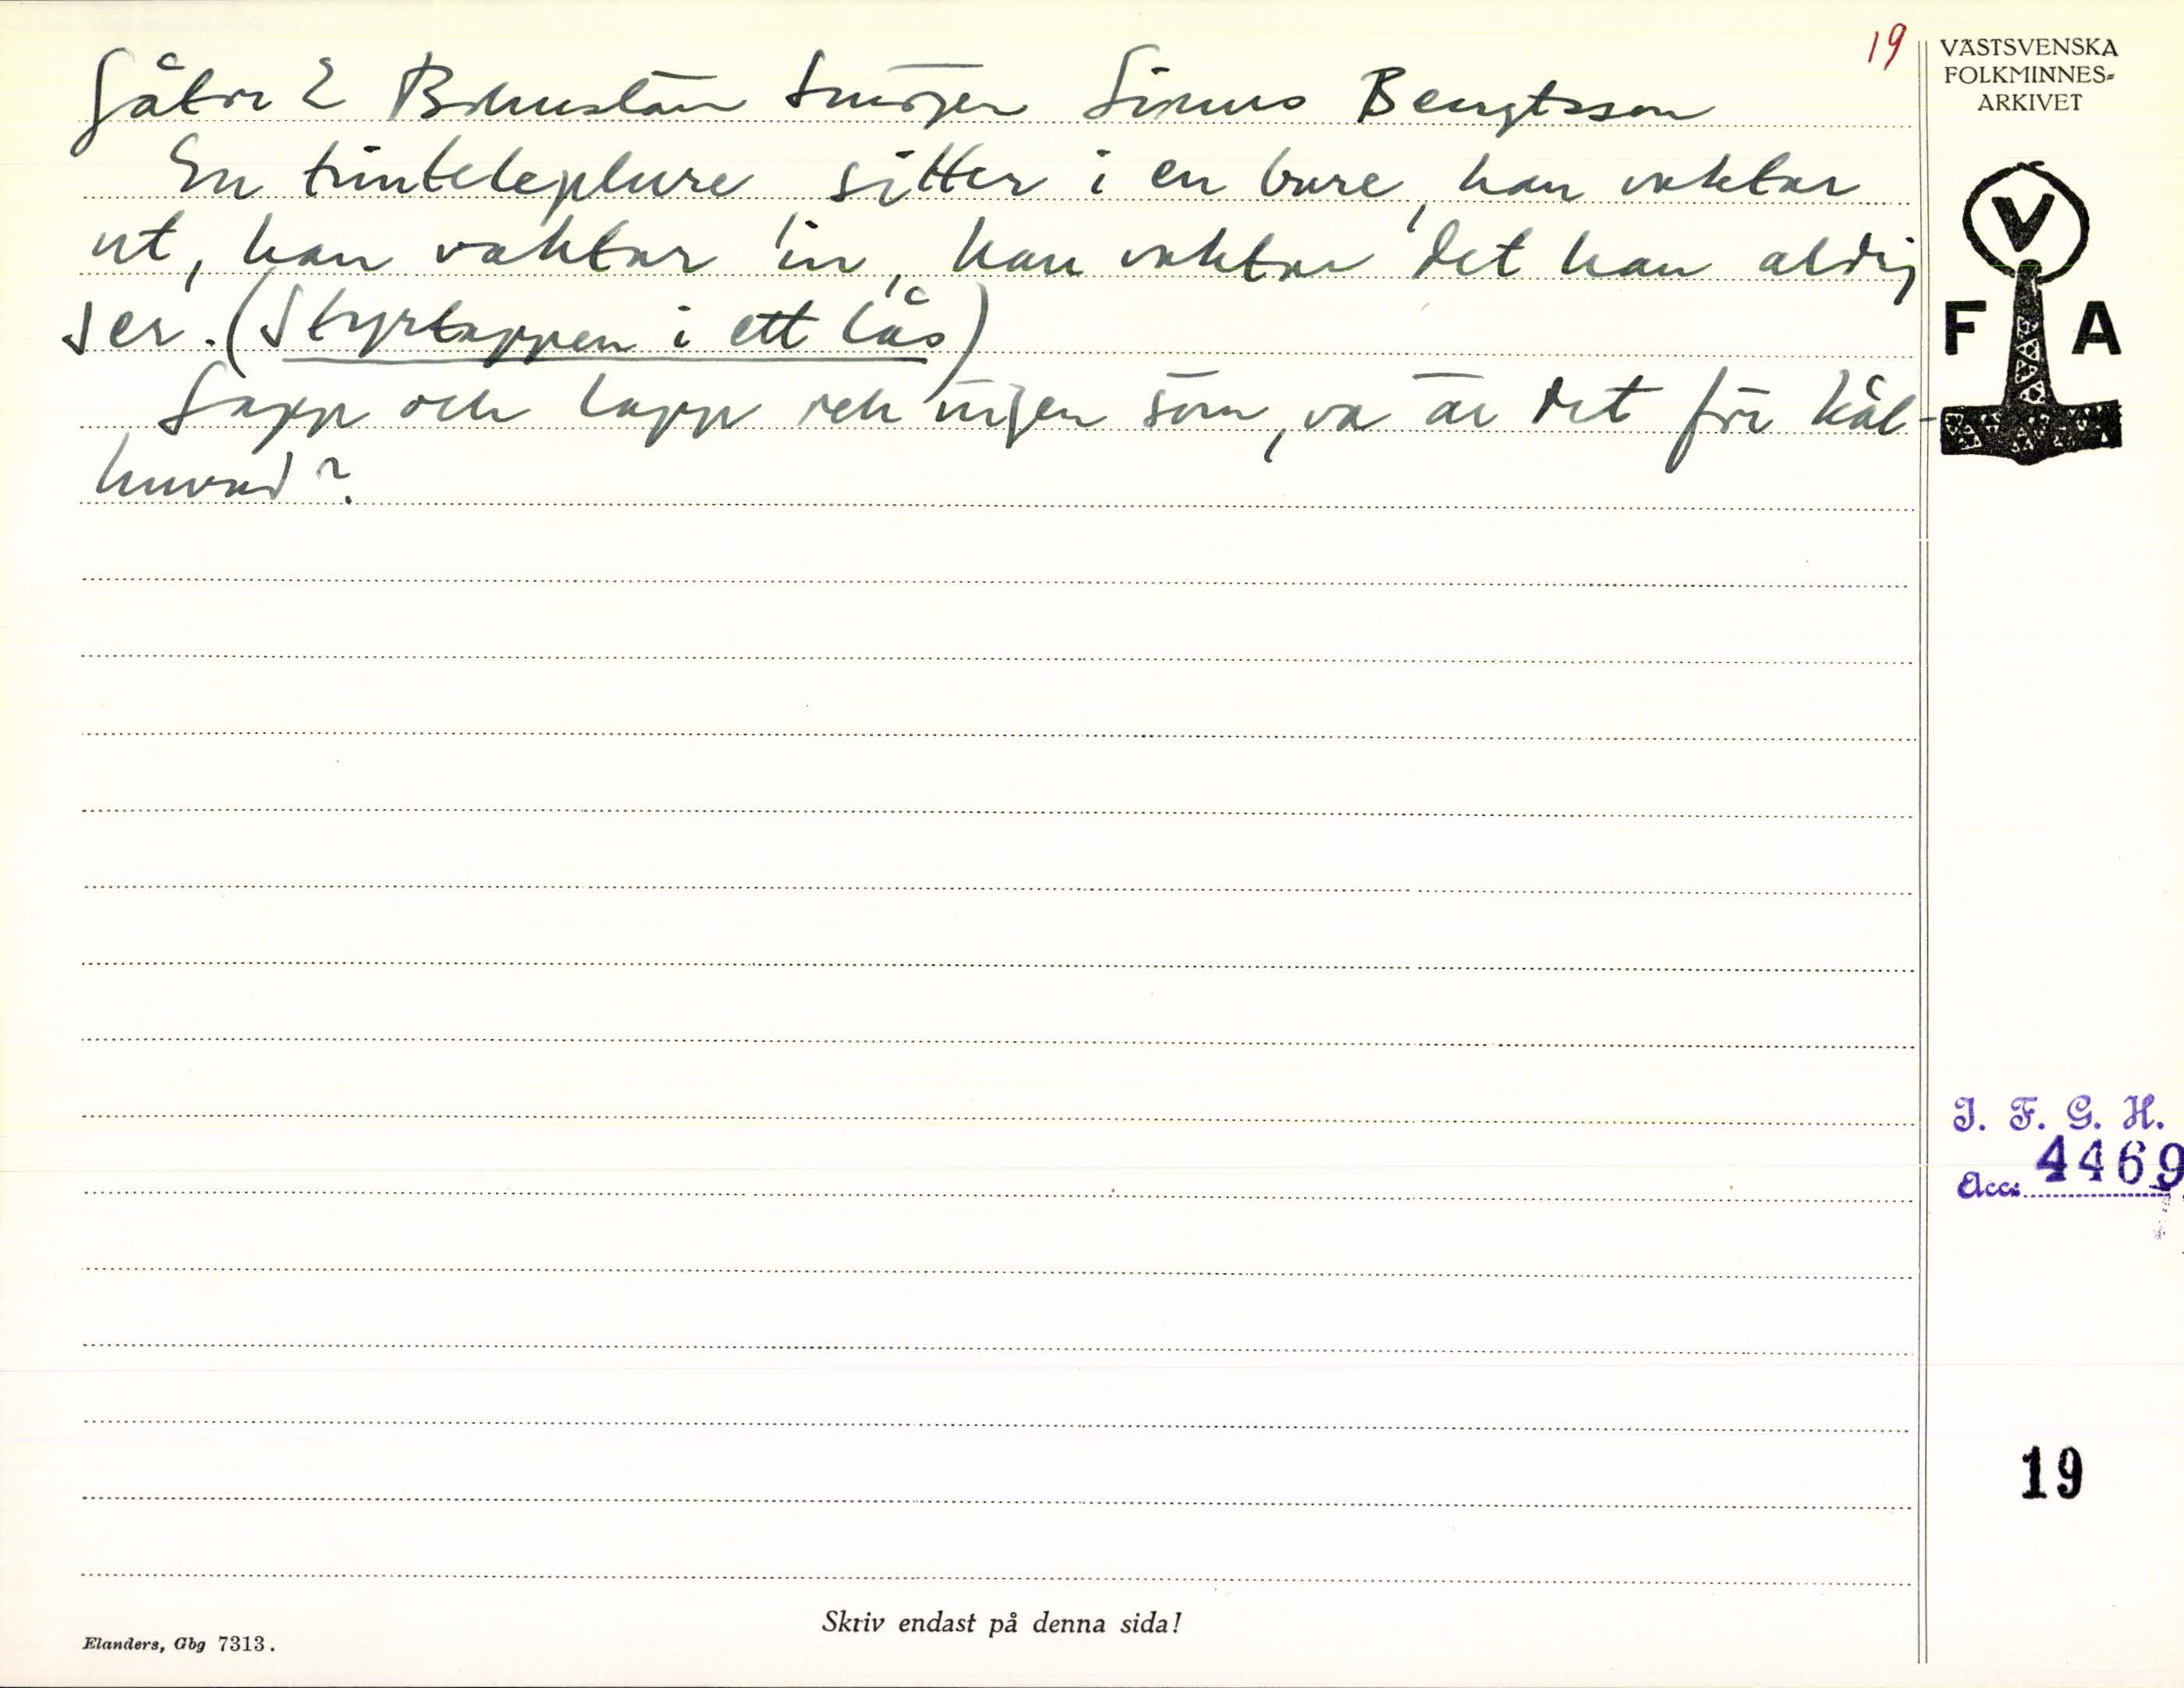 19
VÄSTSVENSKA
FOLKMINNES-
ARKIVET
Gåtor 2 Bohuslän Smögen Simus Bengtsson
En tinteleplure sitter i en bure, han vaktar
ut, han vaktar in, han vaktar det han aldrig
ser. (Styrtappen i ett lås)
Lapp och lapp och ingen söm, va är det för kål-
huvud?
V
F A
I. F. G. H.
Acc: 4469
19
Skriv endast på denna sida!
Elanders, Gbg 7313.